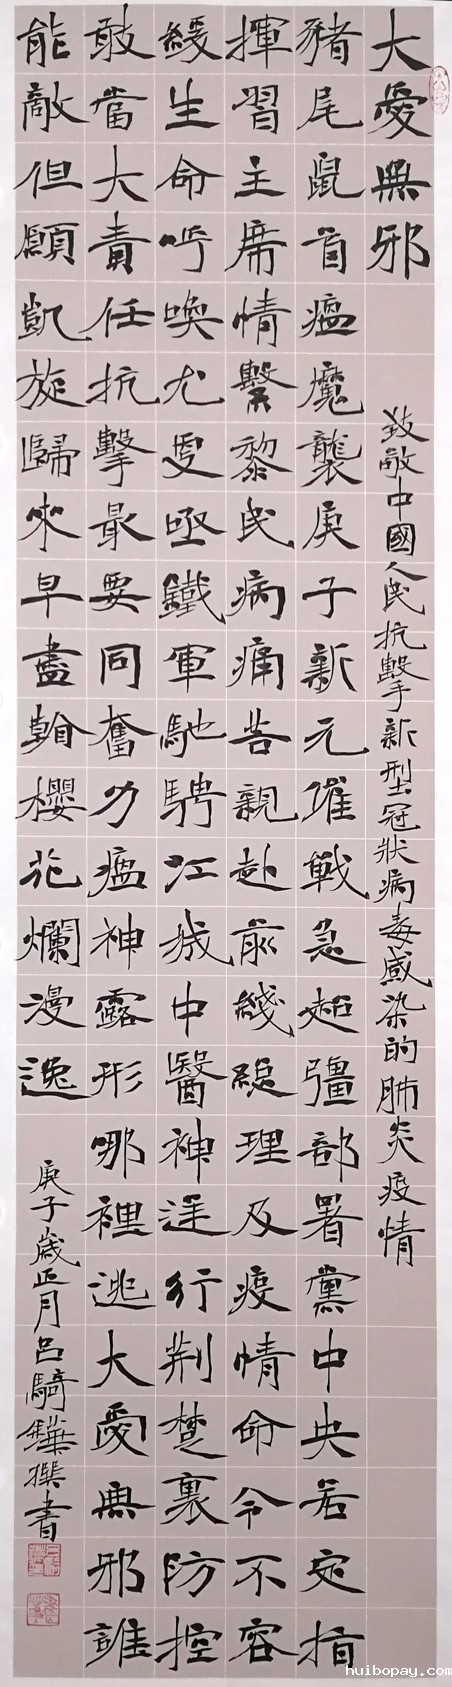 大愛無邪
致敬中國人民抗擊新型冠狀病毒感染的肺炎疫情
豬尾鼠首瘟魔襲庚子新元催戰急超彊部署黨中央若定指
揮習主席情繫黎民病痛苦親赴前綫總理及疫情命令不容
緩生命呼喚尤更亟鐵軍馳騁江城中醫神行荆楚裏防控
敢當大責任抗擊最要同奮力瘟神露形哪裡逃大愛無邪誰
能敵但願凱旋歸來早盡翰櫻花爛漫逸
庚子歲正月吕騎鏵撰書
huibopay.com